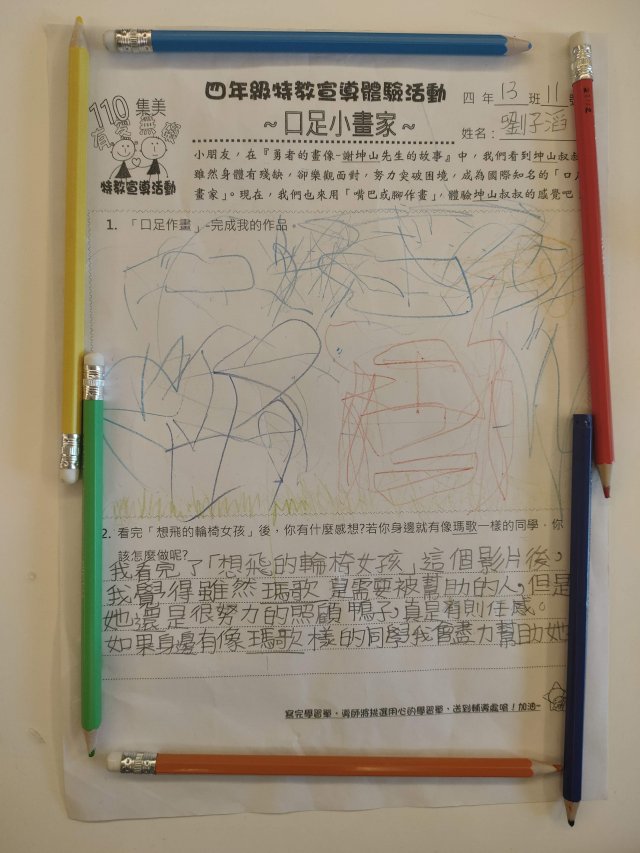 110 集美
有愛無礙
特教宣導活動
四年級特教宣導體驗活動
~口足小畫家~
四 年 13 班 11
姓名: 劉子滔
小朋友,在『勇者的畫像-謝坤山先生的故事』中,我們看到坤山叔叔
雖然身體有殘缺,卻樂觀面對,努力突破困境,成為國際知名的「口足
畫家」。現在,我們也來用「嘴巴或腳作畫」,體驗坤山叔叔的感覺吧
1. 「口足作畫」-完成我的作品。
2. 看完「想飛的輪椅女孩」後,你有什麼感想?若你身邊就有像瑪歌一樣的同學,你
該怎麼做呢?
我看完了「想飛的輪椅女孩」這個影片後,
我覺得雖然瑪歌是需要被幫助的人,但是
她還是很努力的照顧鴨子,真是有則任感。
如果身邊有像瑪歌樣的同學我會盡力幫助她
寫完學習單,導師將挑選用心的學習單,送到輔導處喔!加油~